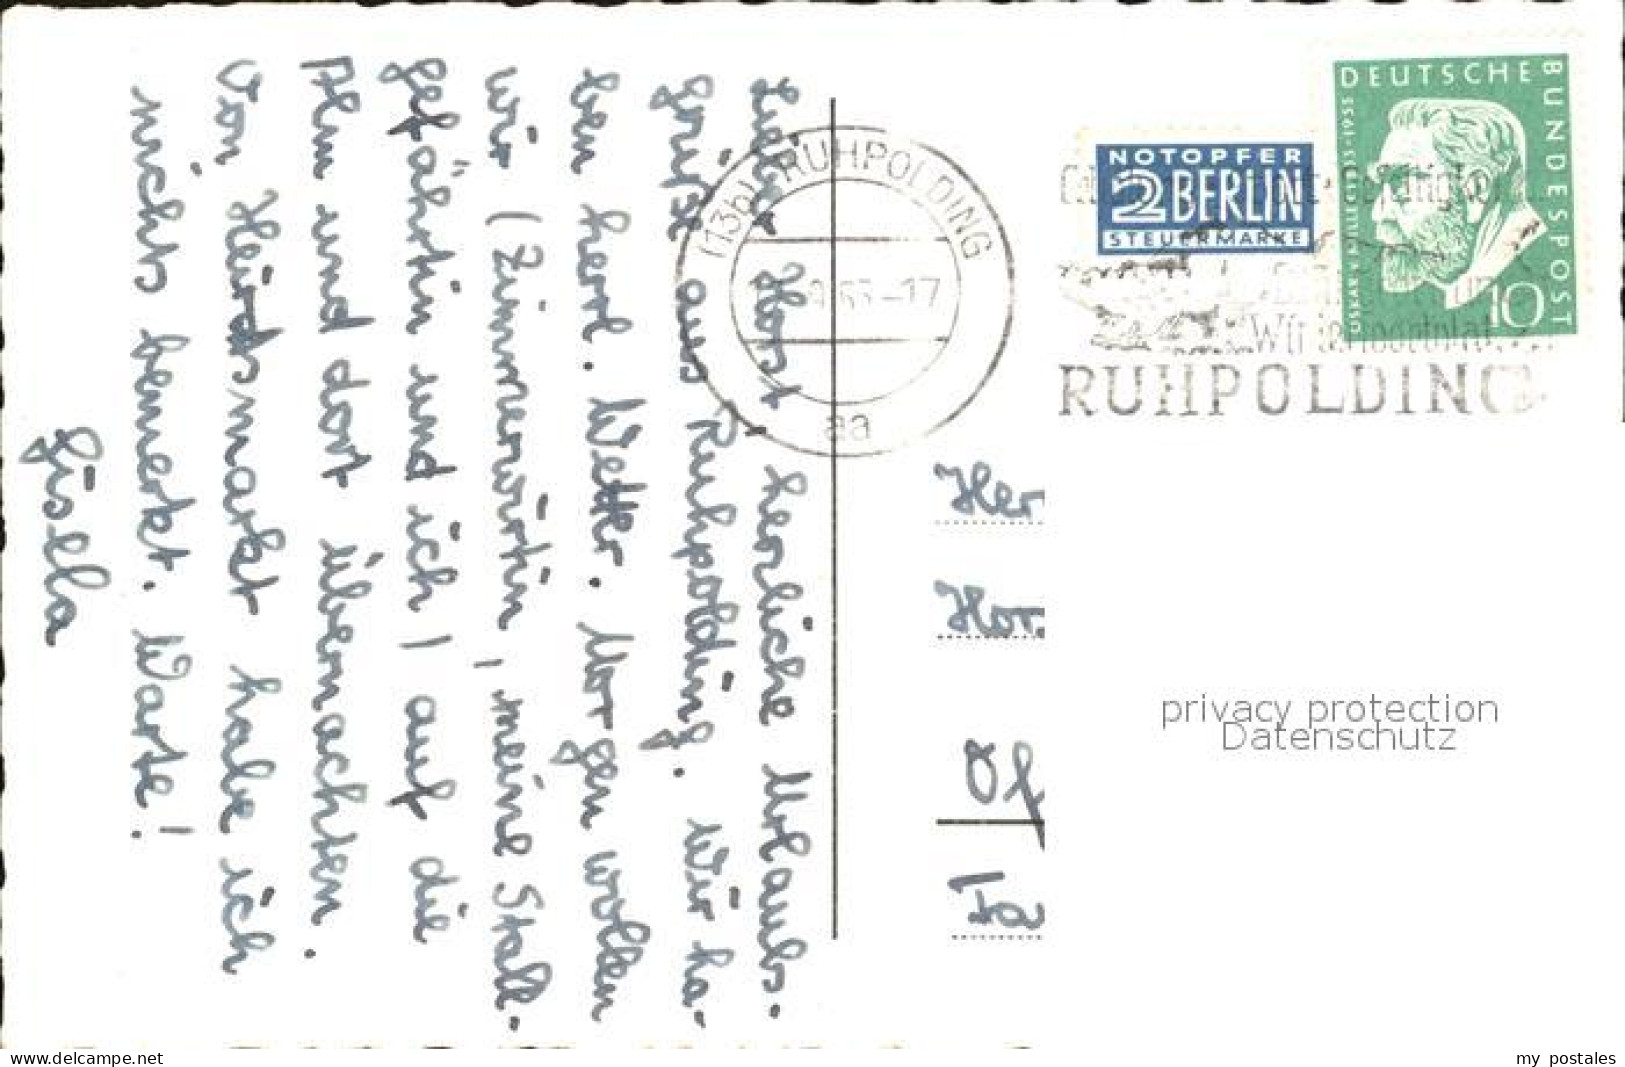 Lieber Horst, herzliche Urlaubs-
grüße aus Ruhpolding. Wir ha-
ben herrl. Wetter. Morgen wollen
wir (Zimmerwirtin, meine Stall-
gefährtin und ich) auf die
Alm und dort übernachten.
Von Heiratsmarkt habe ich
nichts bemerkt. Warte!
Gisela
(13b) RUHPOLDING
-17
aa
NOTOPFER
2 BERLIN
STEUERMARKE
DEUTSCHE BUNDESPOST
OSKAR V. MILLER 1855-1955
10
RUHPOLDING
Her
Hor
Of
privacy protection
Datenschutz
www.delcampe.net
my postales